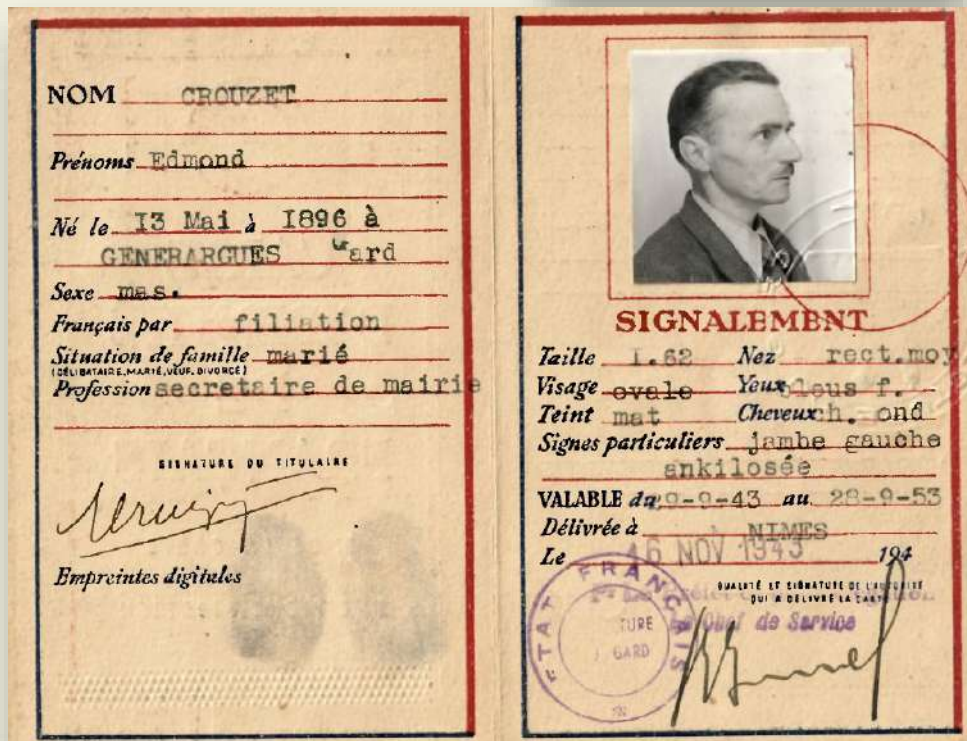 NOM CROUZET
Prénoms Edmond
Né le 13 Mai à 1896 à
GENERARGUES Gard
Sexe mas.
Français par filiation
Situation de famille marié
(CÉLIBATAIRE, MARIÉ, VEUF, DIVORCÉ)
Profession secretaire de mairie
SIGNATURE DU TITULAIRE
Empreintes digitales
SIGNALEMENT
Taille 1.62 Nez rect.moy
Visage ovale Yeux bleus f.
Teint mat Cheveux ch. ond
Signes particuliers jambe gauche
ankilosée
VALABLE du 29-9-43 au 28-9-53
Délivrée à NIMES
Le 16 NOV 1943 194
QUALITÉ ET SIGNATURE DE L'AUTORITÉ
QUI A DÉLIVRÉ LA CARTE
Chef de Service
ETAT FRANÇAIS
TURE
GARD